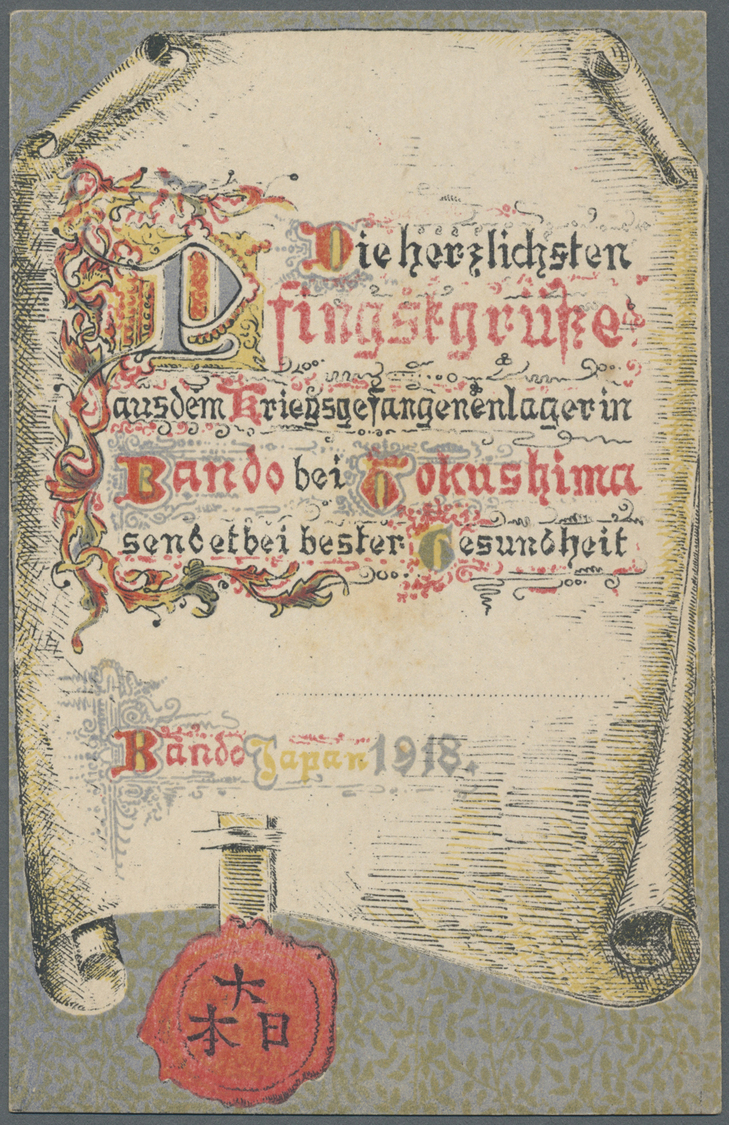 Die herzlichsten
Pfingstgrüße
aus dem Kriegsgefangenenlager in
Bando bei Tokushima
sendet bei bester Gesundheit
Bando Japan 1918.
大
日本